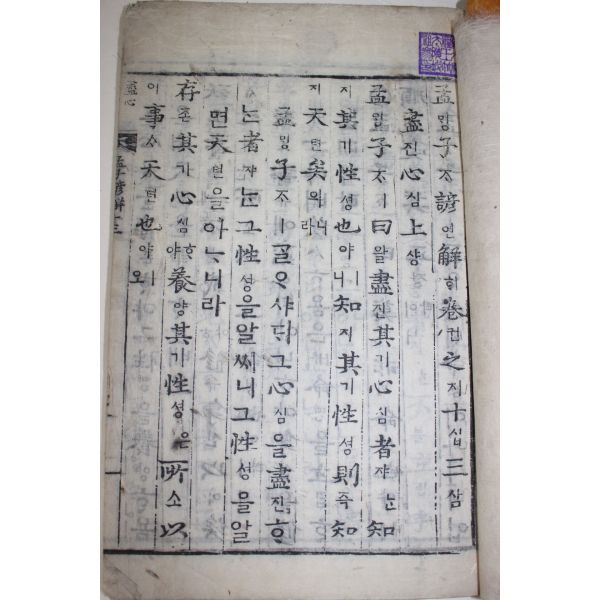 孟ᄆᆡᆼ子ᄌᆞ諺언解ᄒᆡ卷권之지十십三삼
盡진心심上샹
孟ᄆᆡᆼ子ᄌᆞㅣ曰왈盡진其기心심者쟈ᄂᆞᆫ知
지其기性셩也야ㅣ니知지其기性셩則즉知
지天텬矣의니라
孟ᄆᆡᆼ子ᄌᆞㅣᄀᆞᆯᄋᆞ샤ᄃᆡ그心심을盡진ᄒᆞ
ᄂᆞᆫ者쟈ᄂᆞᆫ그性셩을알ᄭᅵ니그性셩을알
면天텬을아ᄂᆞ니라
存존其기心심ᄒᆞ야養양其기性셩은所소以
이事ᄉᆞ天텬也야ㅣ오
盡心
孟子諺解十三